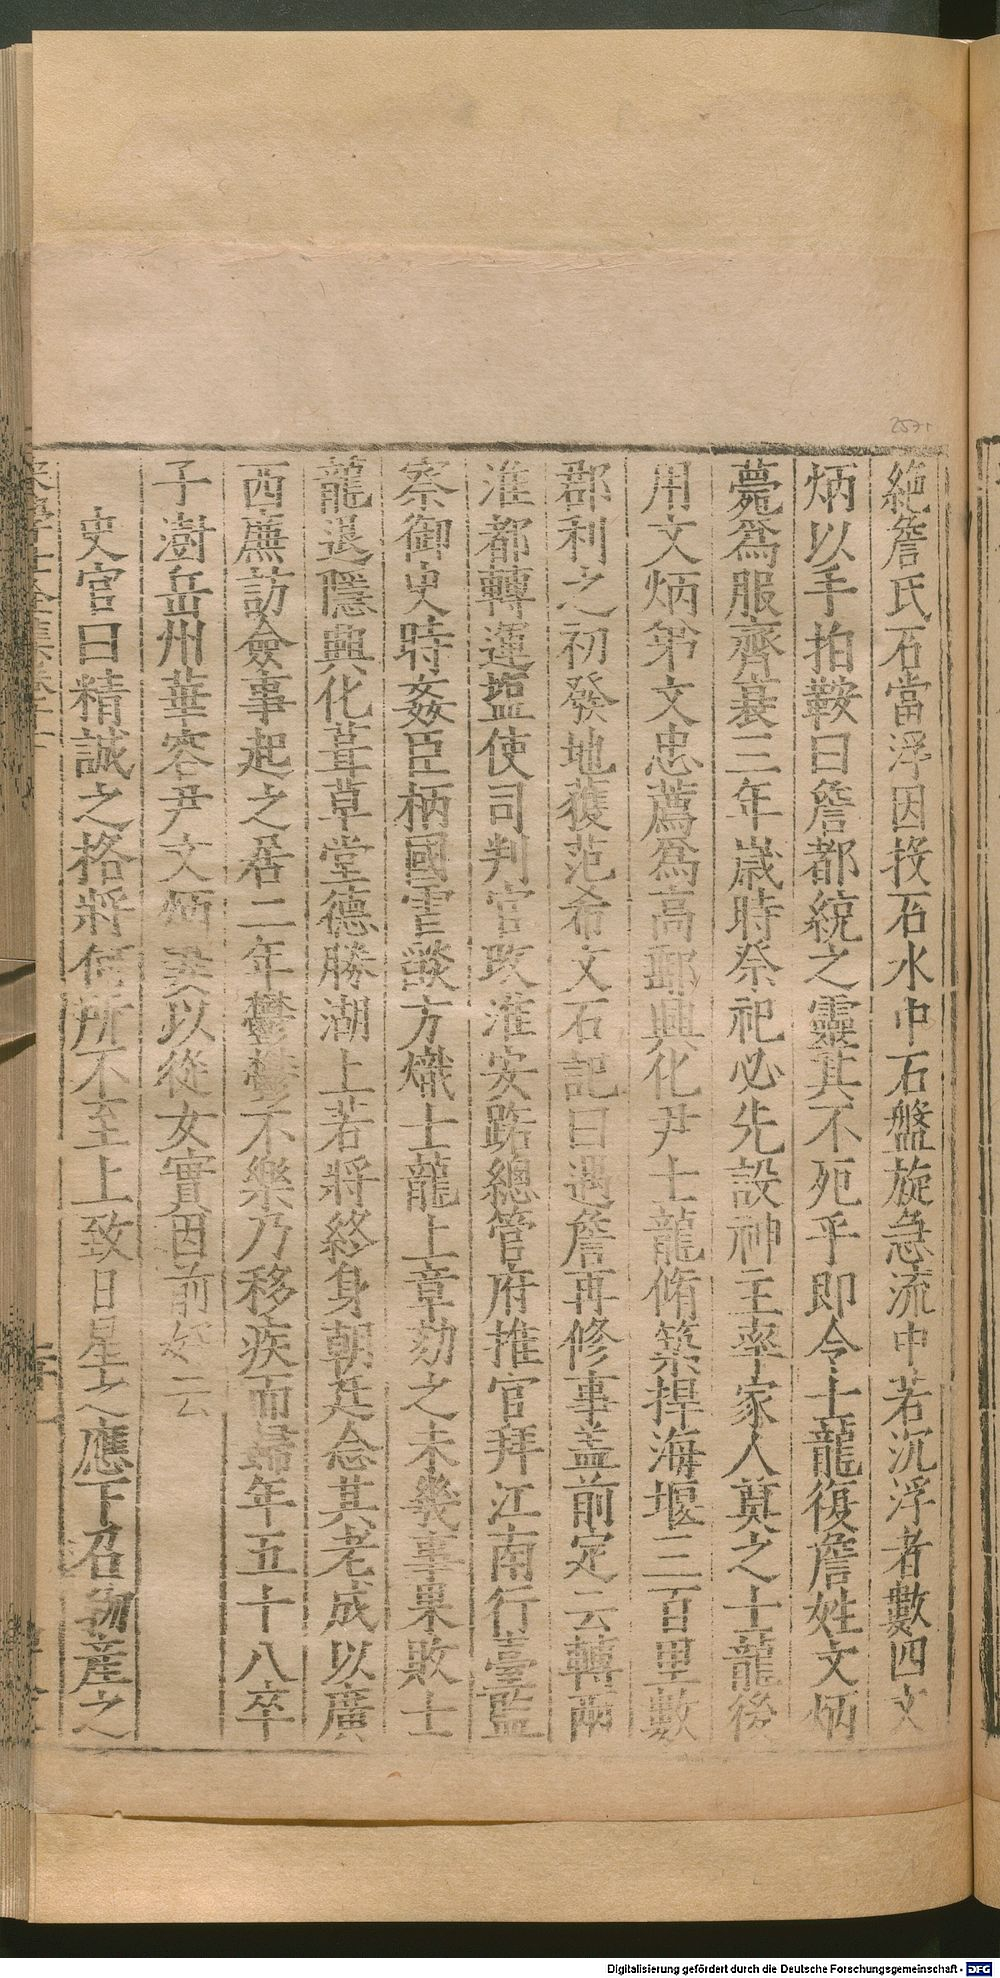 絶詹氏石當浮因投石水中石盤旋急流中若沉浮者數四文
炳以手拍鞍曰詹都統之靈其不死乎即令士龍復詹姓文炳
薨為服齊衰三年歲時祭祀必先設神主率家人奠之士龍後
用文炳弟文忠薦為高郵興化尹士龍脩築捍海堰三百里數
郡利之初發地獲范希文石記曰遇詹再修事蓋前定云轉兩
淮都轉運鹽使司判官改淮安路總管府推官拜江南行臺監
察御史時姦臣柄國䨥燄方熾士龍上章劾之未幾事果敗士
龍退隱興化葺草堂德勝湖上若將終身朝廷念其老成以廣
西廉訪僉事起之居二年鬱鬱不樂乃移疾而歸年五十八卒
子澍岳州華容尹文炳妻以從女實因前好云
史官曰精誠之格將何所不至上致日星之應下召物產之
2571
Digitalisierung gefördert durch die Deutsche Forschungsgemeinschaft - DFG